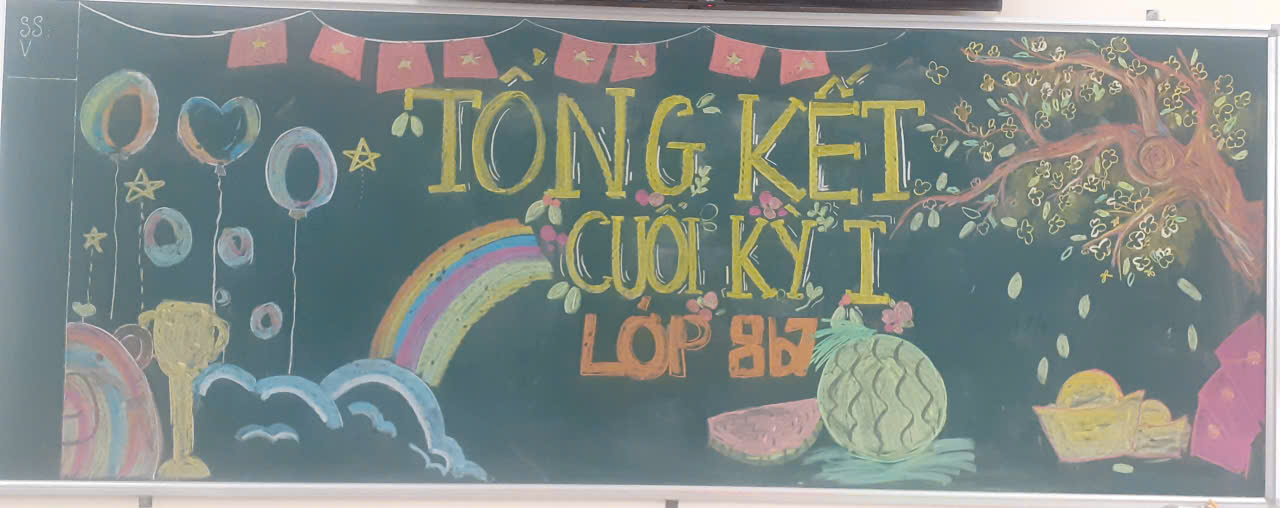 SS:
V
TỔNG KẾT
CUỐI KỲ I
LỚP 8b7